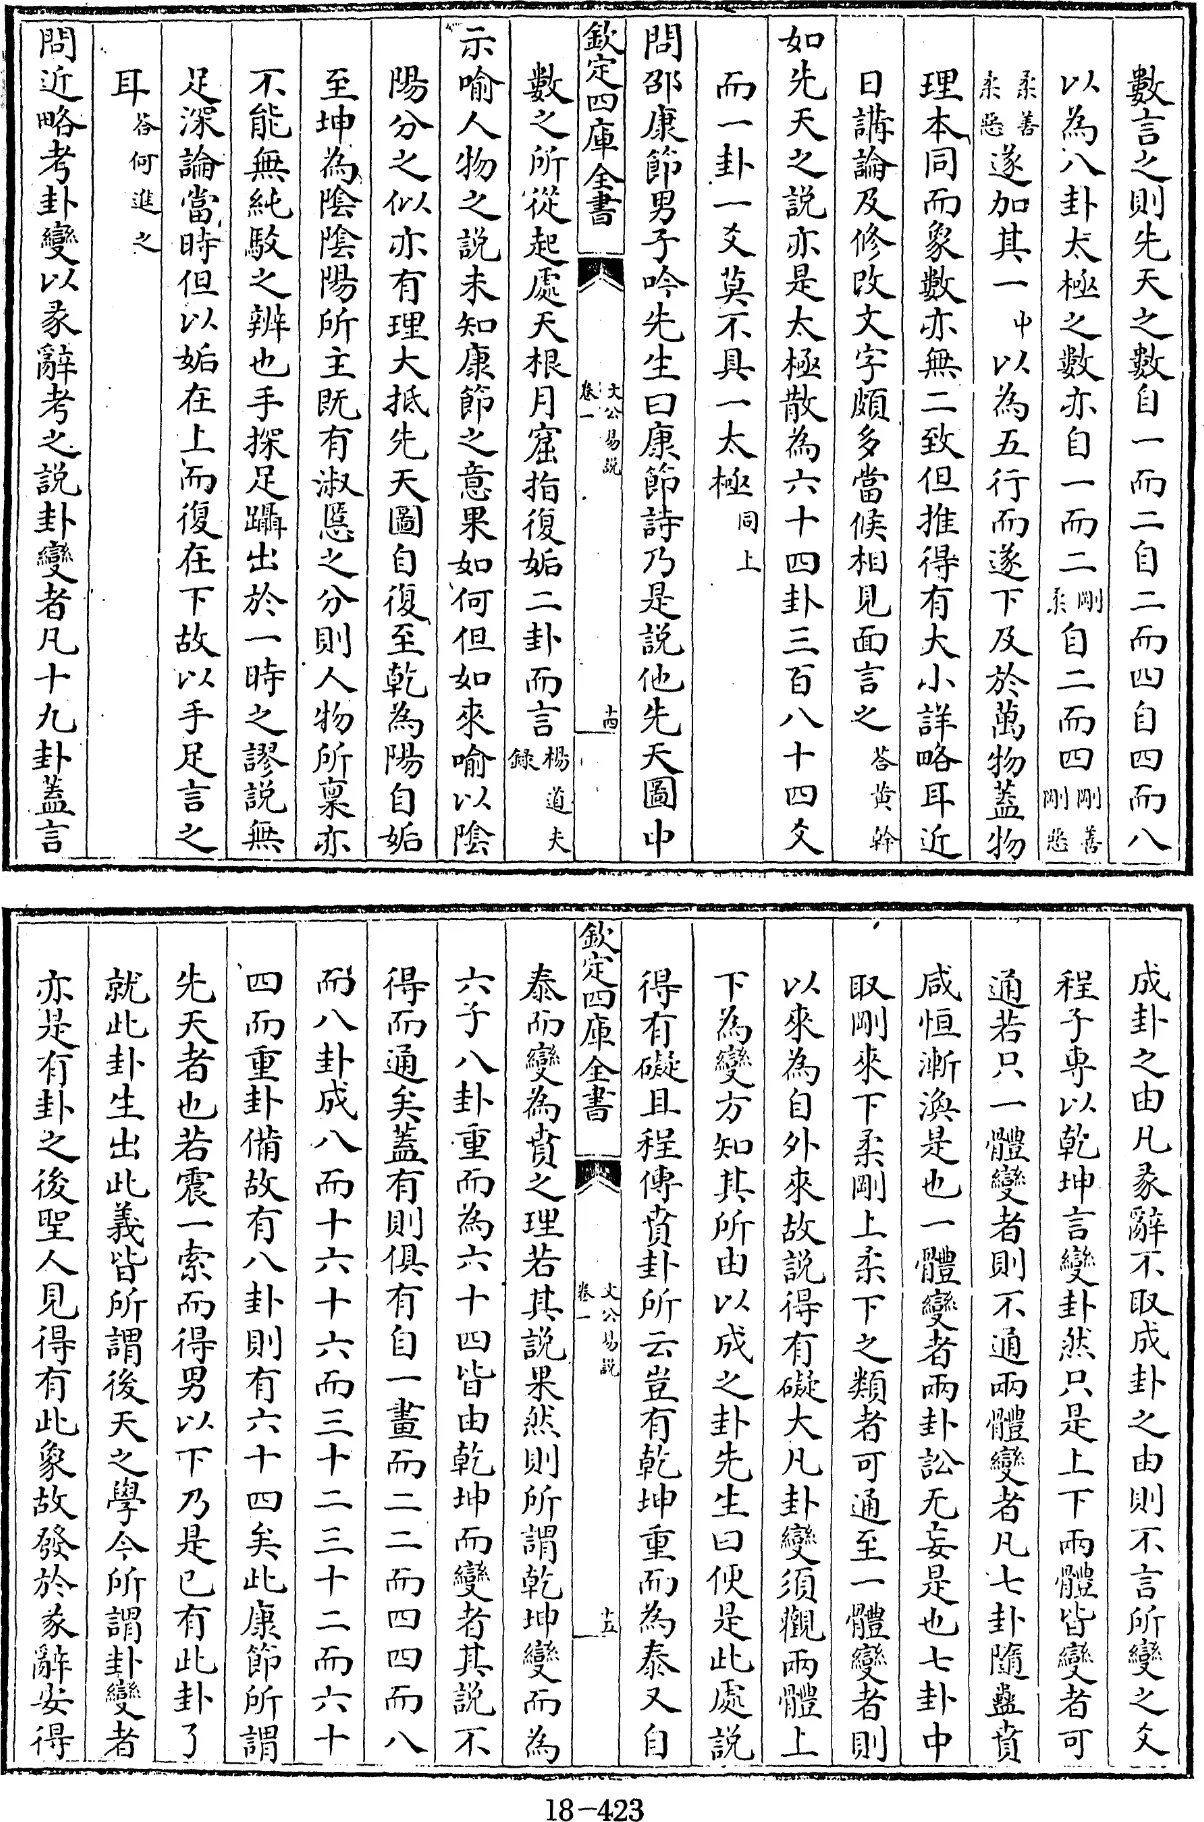 數言之則先天之數自一而二自二而四自四而八
以為八卦太極之數亦自一而二剛柔自二而四剛善剛惡
柔善柔惡遂加其一中以為五行而遂下及於萬物蓋物
理本同而象數亦無二致但推得有大小詳略耳近
日講論及修改文字頗多當候相見面言之荅黃幹
如先天之說亦是太極散為六十四卦三百八十四爻
而一卦一爻莫不具一太極同上
問邵康節男子吟先生曰康節詩乃是說他先天圖中
欽定四庫全書
文公易說
卷一
十四
數之所從起處天根月窟指復姤二卦而言楊道夫錄
示喻人物之說未知康節之意果如何但如來喻以陰
陽分之似亦有理大抵先天圖自復至乾為陽自姤
至坤為陰陰陽所主既有淑慝之分則人物所稟亦
不能無純駁之辨也手探足躡出於一時之謬說無
足深論當時但以姤在上而復在下故以手足言之
耳荅何進之
問近略考卦變以彖辭考之說卦變者凡十九卦蓋言
成卦之由凡彖辭不取成卦之由則不言所變之爻
程子專以乾坤言變卦然只是上下兩體皆變者可
通若只一體變者則不通兩體變者凡七卦隨蠱賁
咸恒漸渙是也一體變者兩卦訟无妄是也七卦中
取剛來下柔剛上柔下之類者可通至一體變者則
以來為自外來故說得有礙大凡卦變須觀兩體上
下為變方知其所由以成之卦先生曰便是此處說
得有礙且程傳賁卦所云豈有乾坤重而為泰又自
欽定四庫全書
文公易說
卷一
十五
泰而變為賁之理若其說果然則所謂乾坤變而為
六子八卦重而為六十四皆由乾坤而變者其說不
得而通矣蓋有則俱有自一畫而二二而四四而八
而八卦成八而十六十六而三十二三十二而六十
四而重卦備故有八卦則有六十四矣此康節所謂
先天者也若震一索而得男以下乃是已有此卦了
就此卦生出此義皆所謂後天之學今所謂卦變者
亦是有卦之後聖人見得有此象故發於彖辭安得
18-423